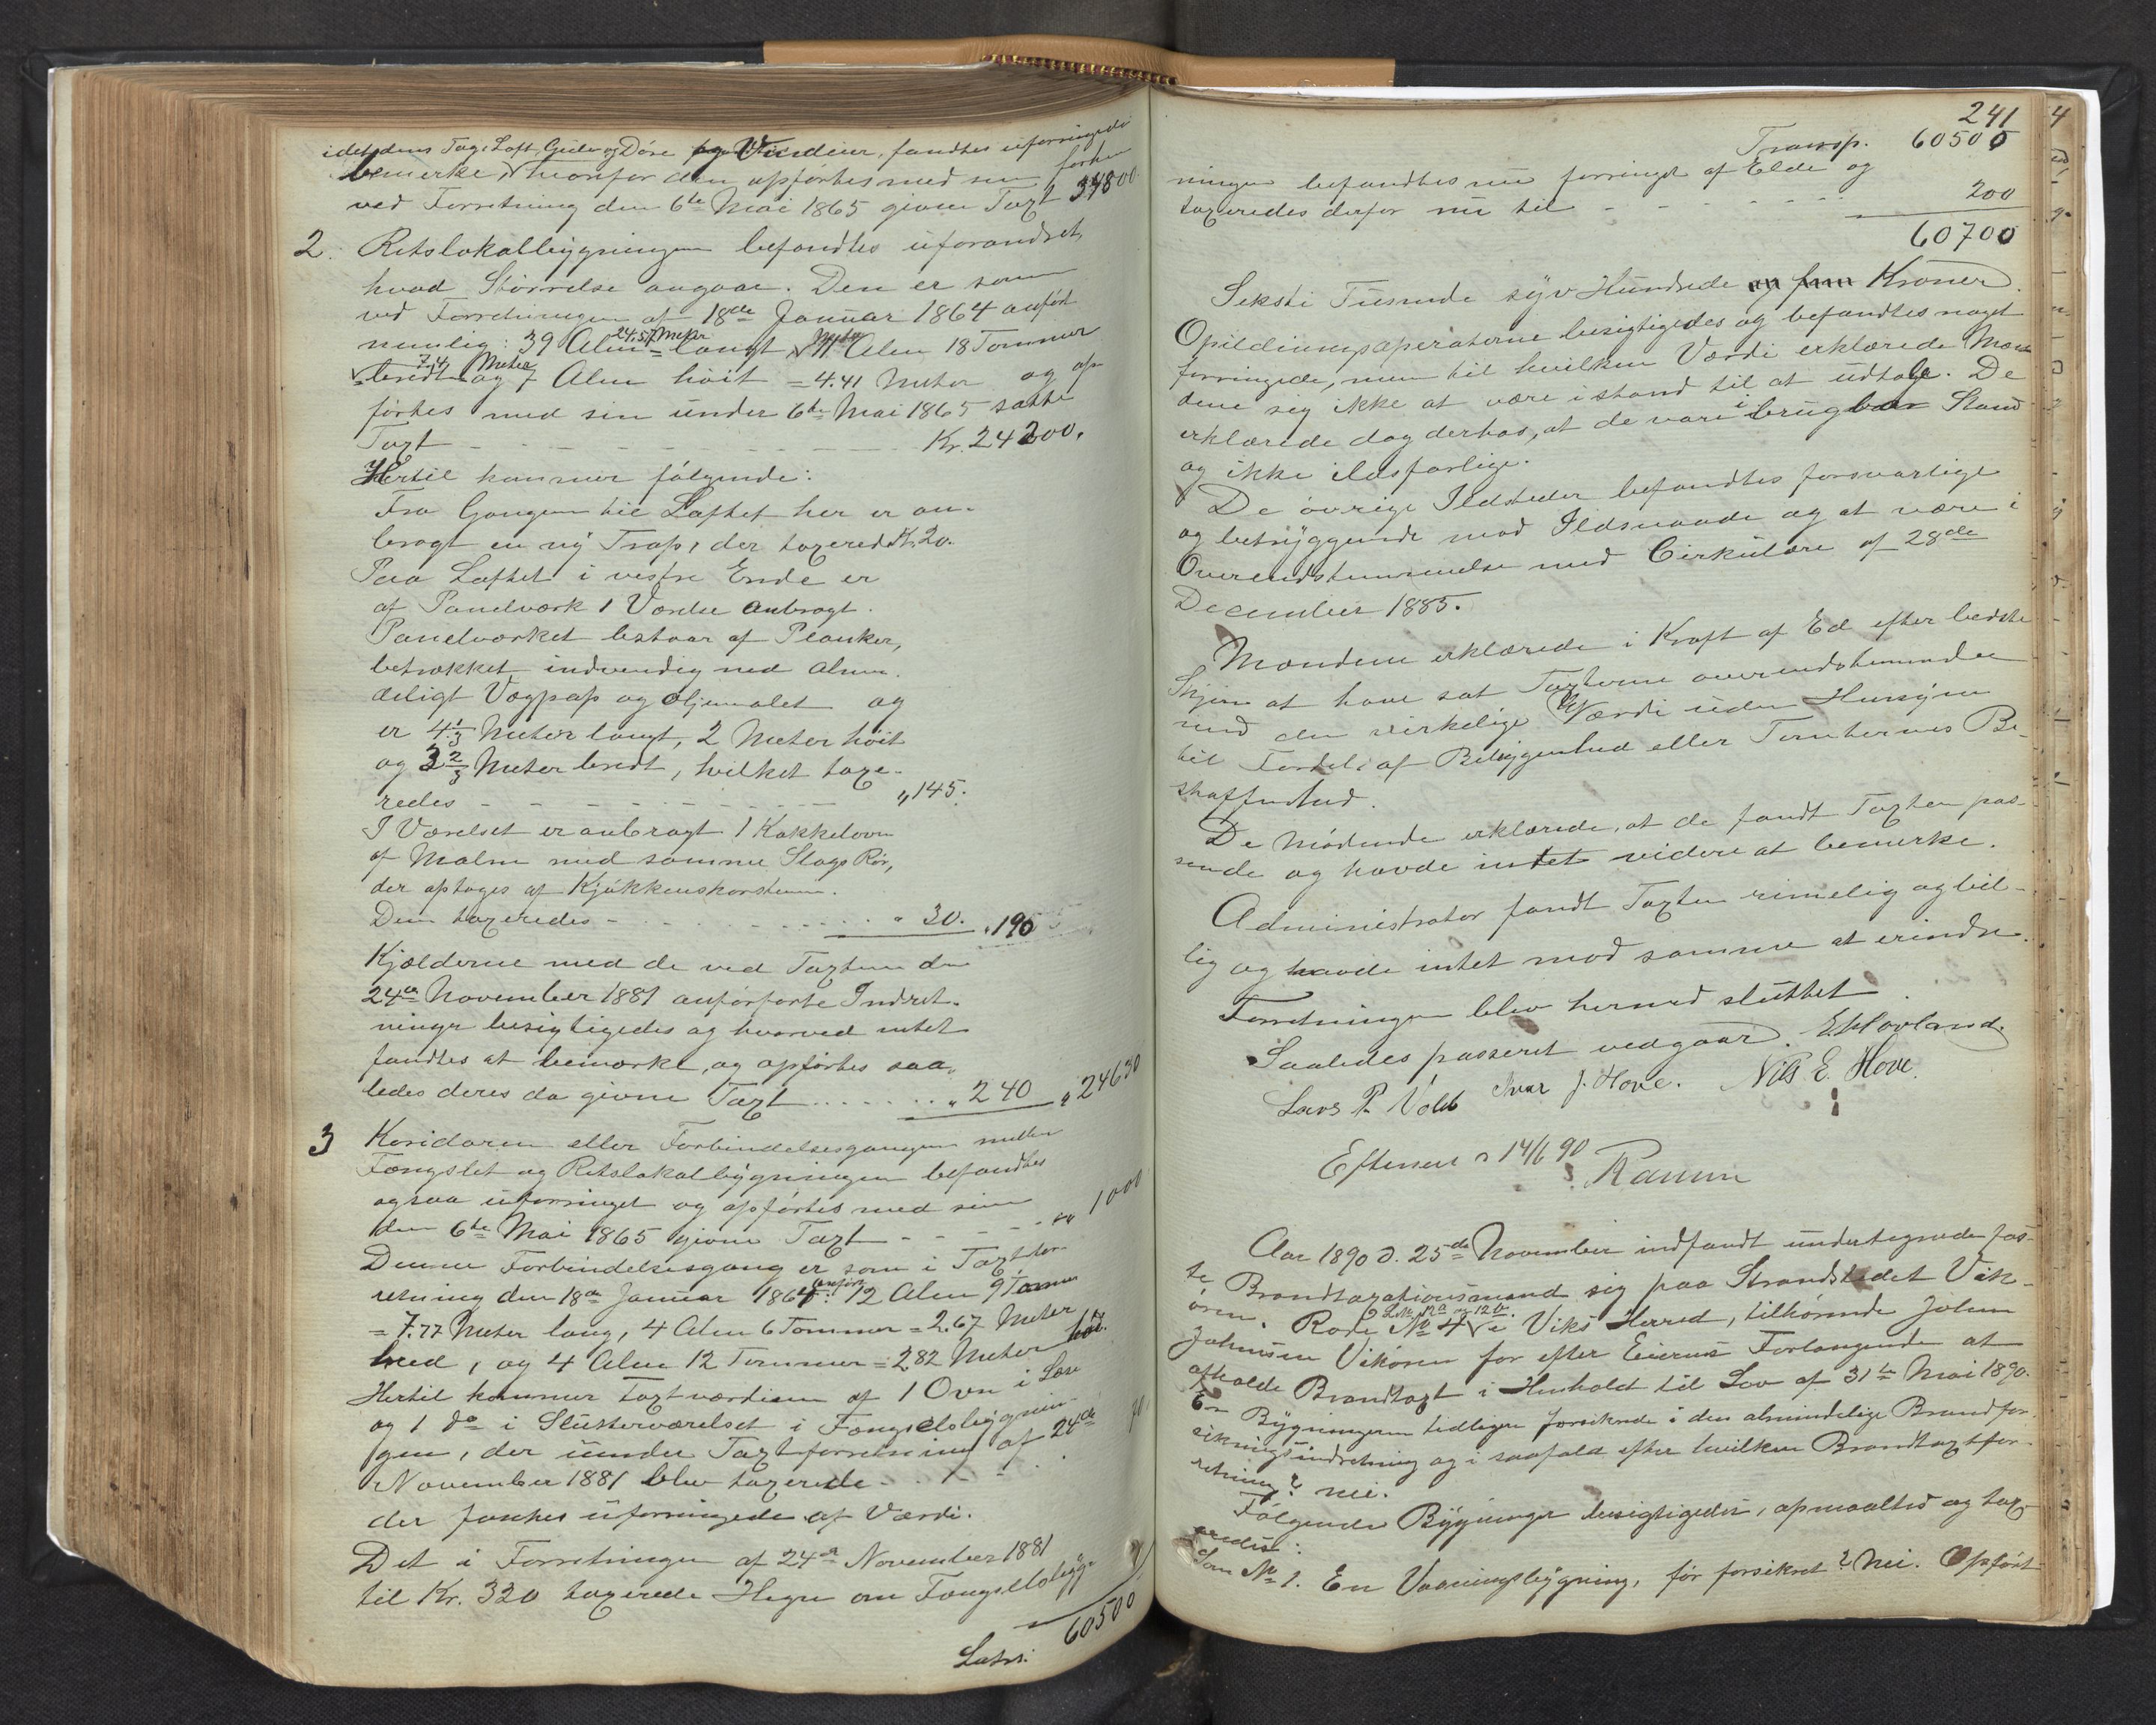 idet dens Tag, Loft, Gulv og Døre og Vinduer, fandtes uforringede
bemerke, hvorfor den opførtes med sin forhen
ved Forretning den 6te Mai 1865 givne Taxt 34800.
2. Retslokalbygningen befandtes uforandret,
hvad Størrelse angaar. Den er som
ved Forretningen af 18de Januar 1864 anført
nemlig: 39 Alen = 24.57 Meter langt, 11 Alen 18 Tommer
bredt = 7.4 Meter og 7 Alen høit = 4.41 Meter og op
førtes med sin under 6te Mai 1865 satte
Taxt - - - - - - - - Kr. 24200.
Hertil kommer følgende:
Fra Gangen til Loftet her er an-
bragt en ny Trap, der taxered. Kr. 20.
Paa Loftet i vestre Ende er
af Panelværk 1 Værelse anbragt.
Panelværket bestaar af Planker,
betrækket indvendig med almin.
deligt Vægpap og oljemalet og
er 4 1/3 Meter langt, 2 Meter høit
og 3 2/3 Meter bredt, hvilket taxe-
redes - - - - - - - - „ 145.
I Værelset er anbragt 1 Kakkelovn
af Malm med samme Slags Rør,
der optages af Kjøkkenskorstenen.
Den taxeredes - - - - - - „ 30. „ 195
Kjælderne med de ved Taxten den
24de November 1881 anførførte Indret-
ninger besigtigedes og hvorved intet
fandtes at bemærke, og opførtes saa-
ledes deres da givne Taxt . . . . . . „ 240 „ 24630
3 Koridoren eller Forbindelsesgangen mellem
Fængslet og Retslokalbygningen befandtes
ogsaa uforringet og opførtes med sin
den 6te Mai 1865 givne Taxt - - - - „ 1000
Denne Forbindelsesgang er som i Taxtfor-
retning den 18de Januar 1864 anført: 12 Alen 9 Tommer
= 7.77 Meter lang, 4 Alen 6 Tommer = 2.67 Meter
bred, og 4 Alen 12 Tommer = 2.82 Meter høi.
Hertil kommer Taxtværdien af 1 Ovn i
og 1 do i Slutterværelset i Fængselsbygnin-
gen, der under Taxtforretning af 24de
November 1881 blev taxerede - - - - 70
der fandtes uforringede af Værdi.
Det i Forretningen af 24de November 1881
til Kr. 320 taxerede Hegn om Fængselsbygg-
Latus: 60500
241
Transp. 60500
ningen befandtes nu forringet af Elde og
taxeredes derfor nu til - - - - - - - 200
60700
Seksti Tusinde syv Hundrede og fem Kroner.
Opildningsaperaterne besigtigedes og befandtes noget
forringede, men til hvilken Værdi erklærede Mæn
dene sig ikke at være istand til at udtale. De
erklærede dog derhos, at de vare i brugbar Stand
og ikke ildsfarlige.
De øvrige Ildsteder befandtes forsvarlige
og betryggende mod Ildsvaade og at være i
Overensstemmelse med Cirkulære af 28de
December 1885.
Mændene erklærede i Kraft af Ed efter bedste
Skjøn at have sat Taxterne overensstemmende
med den virkelige Værdi uden Hensyn
til Fordel af Beliggenhed eller Tomternes Be-
skaffenhed.
De Mødende erklærede, at de fandt Taxten pas-
sende og havde intet videre at bemerke.
Administrator fandt Taxten rimelig og bil-
lig og havde intet mod samme at erindre.
Forretningen blev hermed sluttet
Saaledes passeret vedgaar. E. Hovland.
Lars P. Vold Ivar J. Hove. Nils E. Hove.
Efterseet 14/6 90
Ramm
Aar 1890 d. 25de November indfandt undertegnede fas-
te Brandtaxationsmænd sig paa Strandstedet Vik-
øren, Rode No 4 Litr. 12a og 12b. i Viks Herred, tilhørende Johan
Johnsen Vikøren for efter Eierens Forlangende at
afholde Brandtaxt i Henhold til Lov af 31te Mai 1890.
Er Bygningerne tidligere forsikrede i den almindelige Brandfor
sikringsindretning og i saafald efter hvilken Brandtaxtfor-
retning? nei.
Følgende Bygninger besigtigedes, opmaaltes og tax-
eredes:
Som No 1. En Vaaningsbygning, før forsikret? Nei. Opført